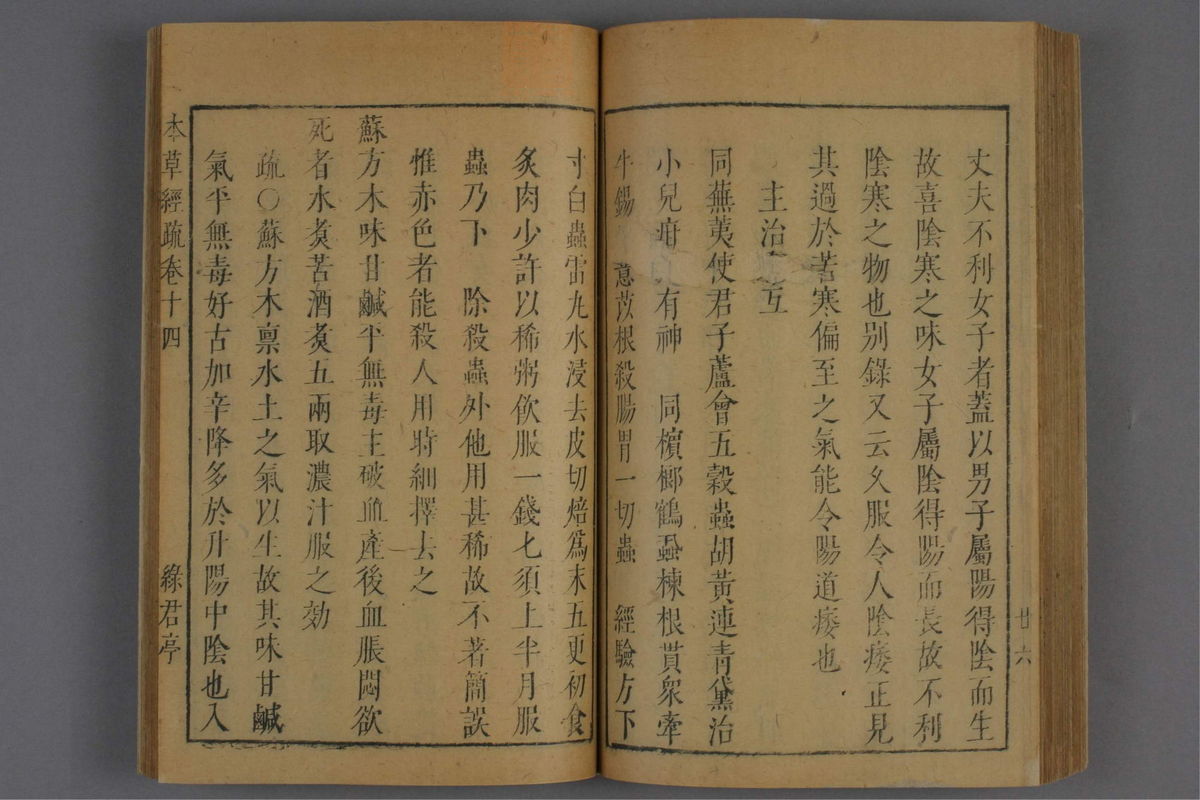 丈夫不利女子者蓋以男子屬陽得陰而生
故喜陰寒之味女子屬陰得陽而長故不利
陰寒之物也别錄又云久服令人陰痿正見
其過於苦寒偏至之氣能令陽道痿也
主治 互
同蕪荑使君子蘆會五穀蟲胡黃連青黛治
小兒疳 有神 同檳榔鶴虱楝根貫衆牽
牛錫 薏苡根殺腸胃一切蟲 經驗方下
廿六
寸白蟲雷丸水浸去皮切焙爲末五更初食
炙肉少許以稀粥飲服一錢匕須上半月服
蟲乃下 除殺蟲外他用甚稀故不著簡誤
惟赤色者能殺人用時細擇去之
蘇方木味甘鹹平無毒主破血產後血脹悶欲
死者水煑苦酒煑五兩取濃汁服之効
疏〇蘇方木禀水土之氣以生故其味甘鹹
氣平無毒好古加辛降多於升陽中陰也入
本草經疏卷十四 綠君亭